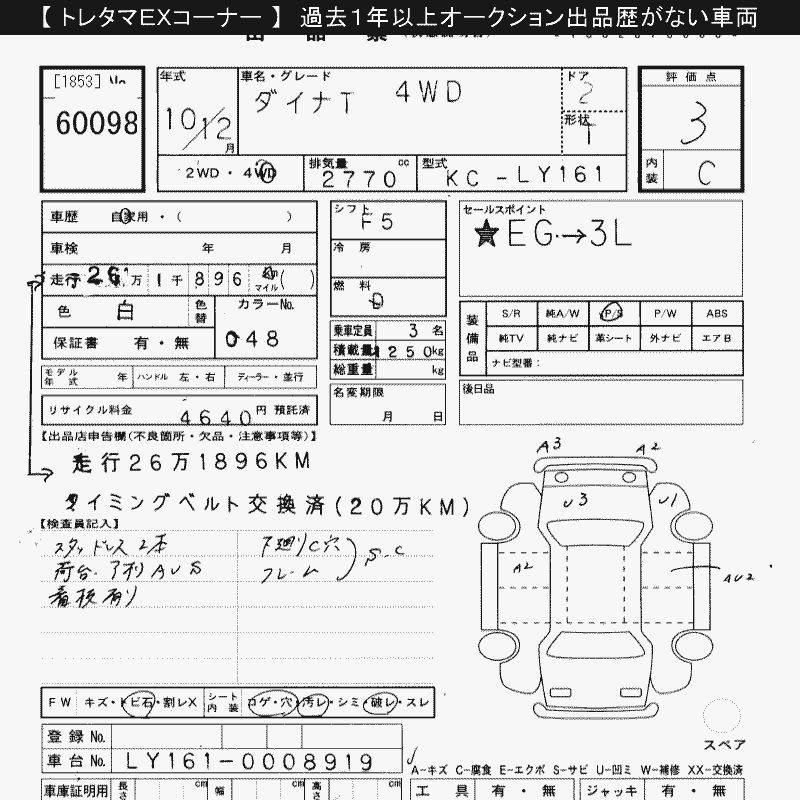 【 トレタマEXコーナー 】 過去1年以上オークション出品歴がない車両
[1853]
60098
年式 10/12 月
車名・グレード ダイナT 4WD
ドア 2
形状 T
2WD・4WD
排気量 2770 cc
型式 KC-LY161
評価点 3
内装 C
車歴 自家用・( )
車検 年 月
走行 26 万 1 千 896 km マイル ( )
色 白 色替 カラーNo.
保証書 有・無 048
モデル年式 年 ハンドル 左・右 ディーラー・並行
リサイクル料金 4640円 預託済
シフト F5
冷房
燃料 D
乗車定員 3 名
積載量 1250kg
総重量 kg
名変期限 月 日
セールスポイント
★EG→3L
装備品 S/R 純A/W P/S P/W ABS
純TV 純ナビ 革シート 外ナビ エアB
ナビ型番:
後日品
【出品店申告欄(不良箇所・欠品・注意事項等)】
走行26万1896KM
タイミングベルト交換済(20万KM)
【検査員記入】
スタッドレス2本 下廻りC穴 S.C
荷台.アオリAUS フレーム
看板有り
A3 A2
U3 U1
A2 AU2
スペア
FW キズ・トビ石・割レX シート内装 コゲ・穴・汚レ・シミ・破レ・スレ
登録No.
車台No. LY161-0008919
A-キズ C-腐食 E-エクボ S-サビ U-凹ミ W-補修 XX-交換済
車庫証明用 長さ cm 幅 cm 高さ cm
工具 有・無 ジャッキ 有・無